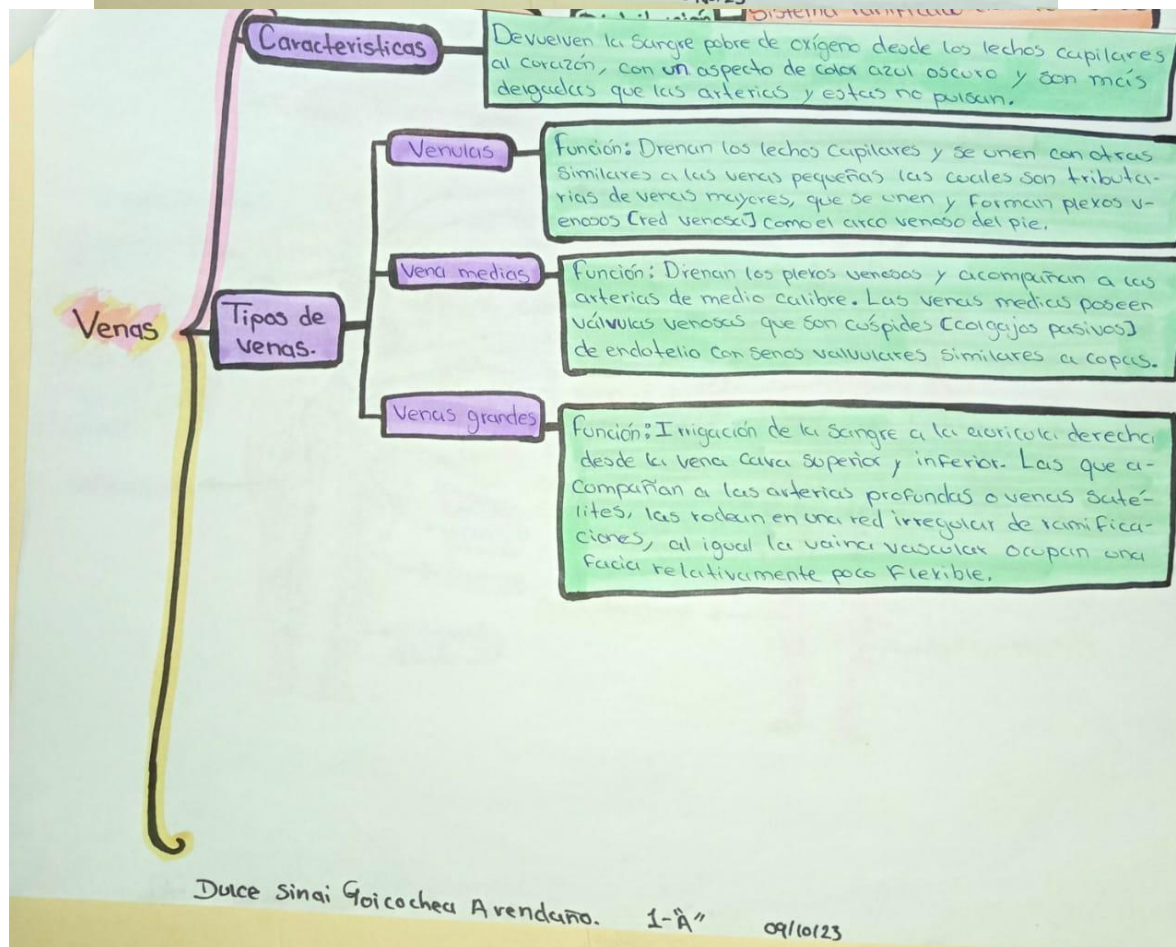 Sistema ramificado
Caracteristicas
Devuelven la sangre pobre de oxígeno desde los lechos capilares
al corazón, con un aspecto de color azul oscuro y son más
delgadas que las arterias y estas no pulsan.
Venas
Tipos de
venas.
Venulas
Función: Drenan los lechos capilares y se unen con otras
similares a las venas pequeñas las cuales son tributa-
rias de venas mayores, que se unen y forman plexos v-
enosos [red venosa] como el arco venoso del pie.
Vena medias
Función: Drenan los plexos venosos y acompañan a las
arterias de medio calibre. Las venas medias poseen
válvulas venosas que son cúspides [colgajos pasivos]
de endotelio con senos valvulares similares a copas.
Venas grandes
Función: Irrigación de la sangre a la auricula derecha
desde la vena cava superior y inferior. Las que a-
compañan a las arterias profundas o venas saté-
lites, las rodean en una red irregular de ramifica-
ciones, al igual la vaina vascular ocupan una
facia relativamente poco flexible.
Dulce Sinai Goicochea Avendaño. 1-"A" 09/10/23